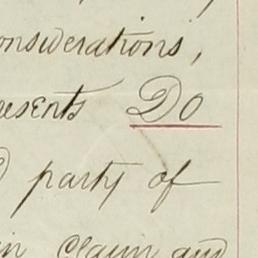 onsiderations,
esents Do
party of
in Claim and